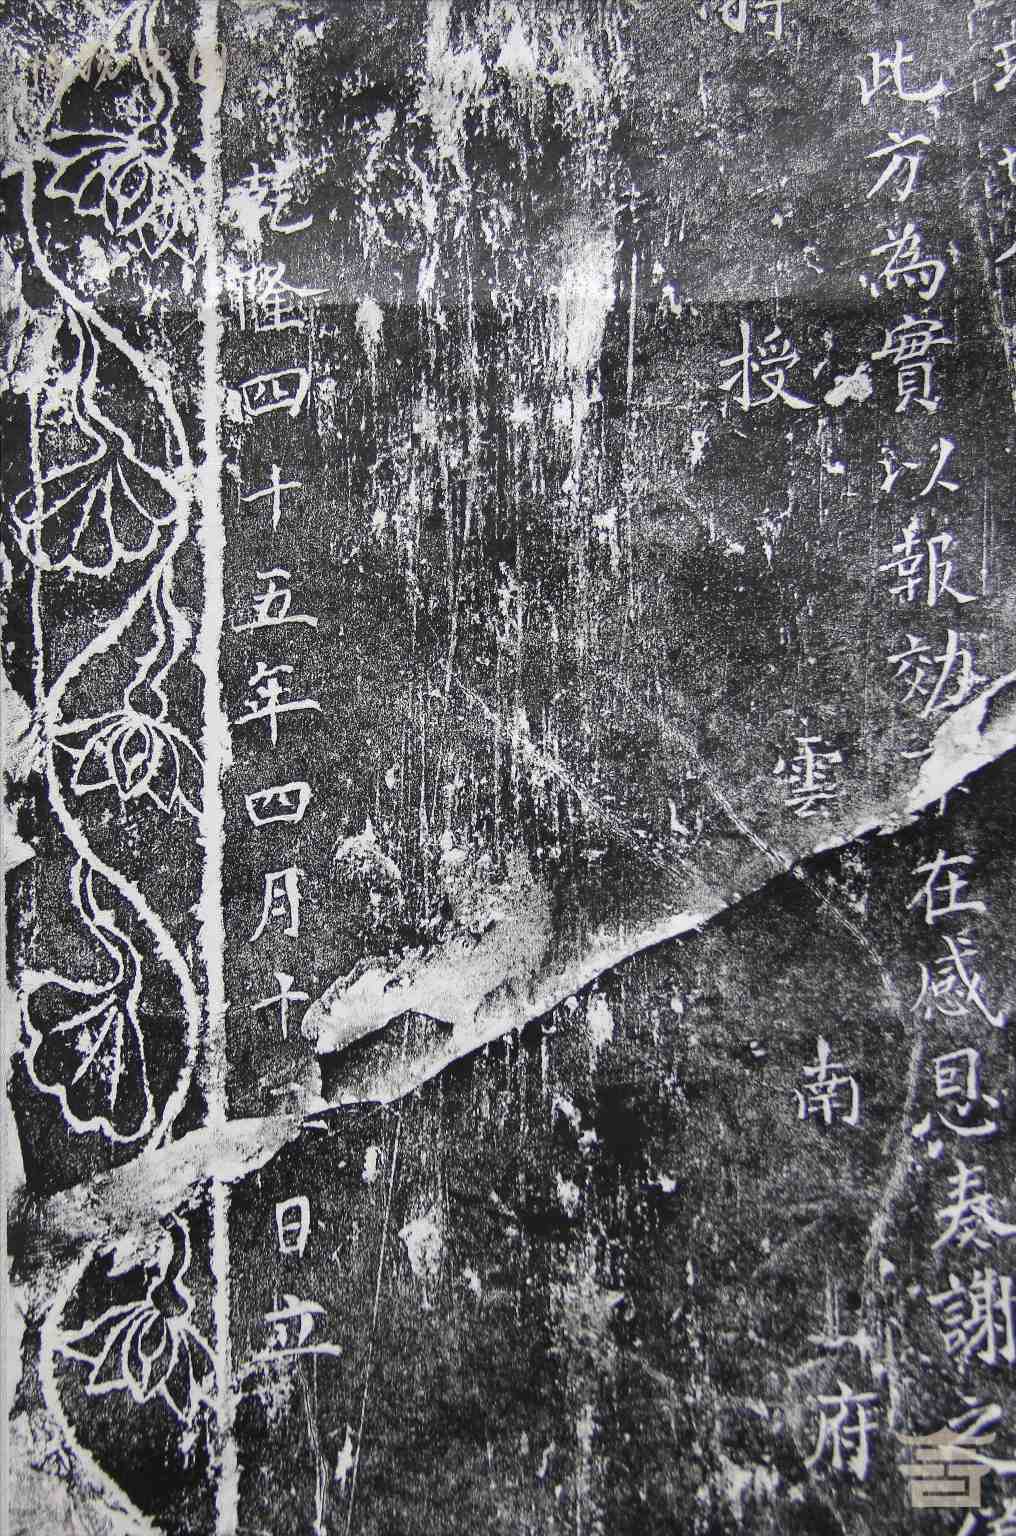 此方為實以報効在感恩奏謝之
授雲南府
乾隆四十五年四月十日立